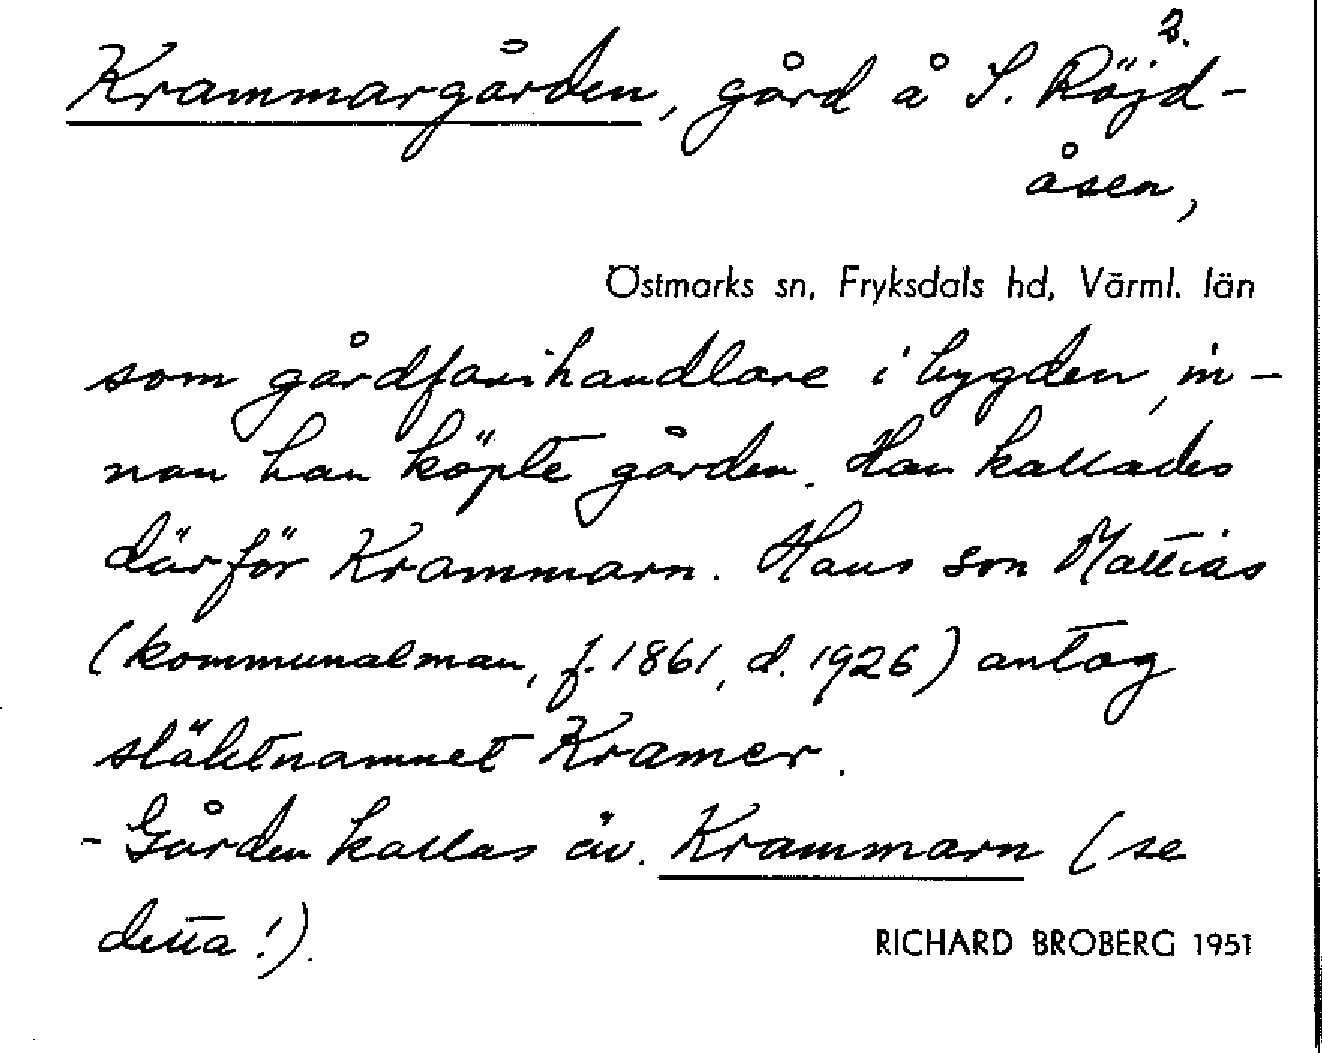 2.
Krammargården, gård å S. Röjd-
åsen,
Östmarks sn, Fryksdals hd, Värml. län
som gårdfarihandlare i bygden, in-
nan han köpte gården. Han kallades
därför Krammarn. Hans son Mattias
(kommunalman, f. 1861, d. 1926) antog
släktnamnet Kramer.
- Gården kallas äv. Krammarn (se
detta!).
RICHARD BROBERG 1951